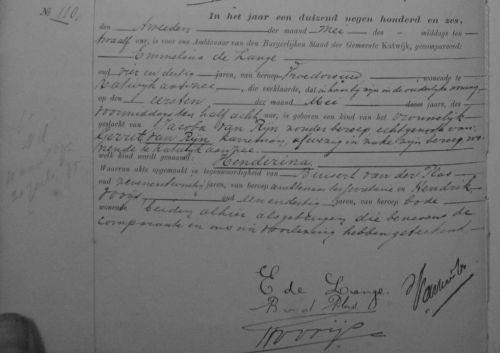 № 110.
In het jaar een duizend negen honderd en zes,
den tweeden der maand Mei des middags ten
twaalf ure, is voor ons Ambtenaar van den Burgerlijken Stand der Gemeente Katwijk, gecompareerd:
Emmelina de Lange
oud vier en dertig jaren, van beroep Vroedvrouw, wonende te
Katwijk aan zee, die verklaarde, dat in haar bijzijn in de ouderlijke woning
op den eersten der maand Mei dezes jaars, des
voormiddags ten half acht ure, is geboren een kind van het vrouwelijk
geslacht van Jacoba van Rijn zonder beroep, echtgenoote van
Gerrit van Rijn, afwezig in zake zijn beroep, wo-
nende te Katwijk aan zee.
welk kind wordt genaamd: Henderina.
Waarvan akte opgemaakt in tegenwoordigheid van van der Plas
oud zevenentwintig jaren, van beroep ambtenaar ter secretarie en Hendrik
oud eenendertig jaren, van beroep bode
wonende beiden alhier als getuigen die benevens de
comparante en ons na voorlezing hebben geteekend.
E de Lange.